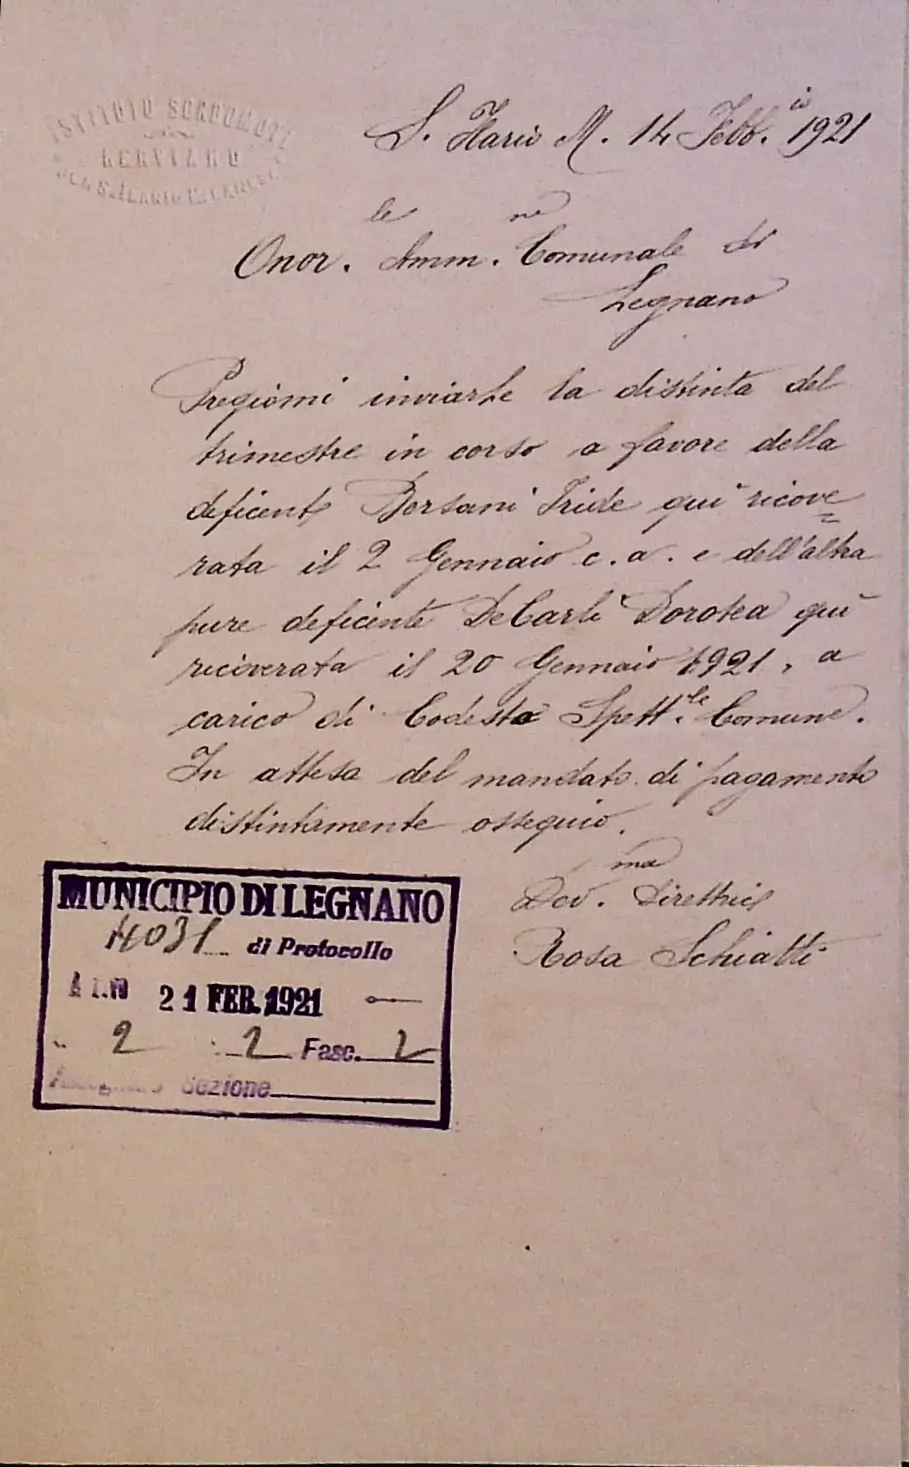 ISTITUTO SORDOMUTI
NERVIANO
PER S. ILARIO MILANESE
S. Ilario M. 14 Febb.io 1921
Onor.le Amm.ne Comunale di
Legnano
Pregiomi inviarle la distinta del
trimestre in corso a favore della
deficente Borsani Iride qui ricove=
rata il 2 Gennaio c.a. e dell'altra
pure deficente DeCarli Dorotea qui
ricoverata il 20 Gennaio 1921, a
carico di Codesto Spett.le Comune.
In attesa del mandato di pagamento
distintamente ossequio.
Dev.ma Direttrice
Rosa Schiatti
MUNICIPIO DI LEGNANO
4031 di Protocollo
21 FEB. 1921
2 2 Fasc. 2
Assegnato Sezione